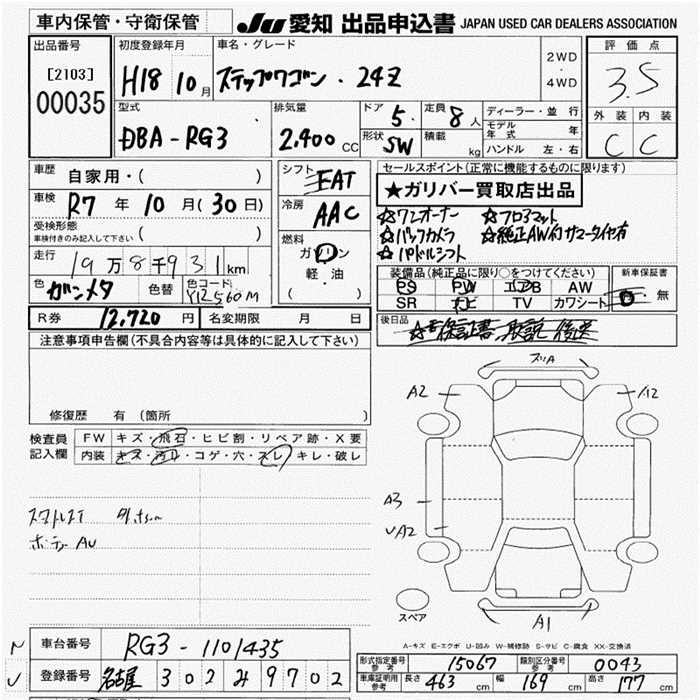 車内保管・守衛保管
JU 愛知 出品申込書 JAPAN USED CAR DEALERS ASSOCIATION
出品番号
[2103]
00035
初度登録年月
H18 10月
車名・グレード
ステップワゴン・24Z
2WD
・
4WD
評価点
3.5
外装 内装
C C
型式
DBA-RG3
排気量
2,400 CC
ドア 5.
定員 8人
形状 SW
積載 kg
ディーラー・並行
モデル年式 年
ハンドル 左・右
車歴 自家用・( )
車検 R7年10月(30日)
受検形態
車検付きのみ記入して下さい ( )
走行 19万8千931km
色 ガンメタ 色替 色コード YR560M
シフト FAT
冷房 AAC
燃料 ガソリン
軽・油
( )
セールスポイント(正常に機能するものに限ります)
★ガリバー買取店出品
☆ワンオーナー ☆フロアマット
☆バックカメラ ☆純正AW付サマータイヤ有
☆パドルシフト
装備品(純正品に限り○をつけてください)
PS PW エアB AW
SR ナビ TV カワシート
新車保証書
有・無
R券 12,720円 名変期限 月 日
後日品 ☆保証書 取説 後送
注意事項申告欄(不具合内容等は具体的に記入して下さい)
修復歴 有 (箇所 )
検査員記入欄
FW キズ・飛石・ヒビ割・リペア跡・X要
内装 キズ・汚れ・コゲ・穴・スレ・キレ・破レ
スタットレスT
ボディー AU
A2
A12
A3
UA2
A1
スペア
A-キズ E-エクボ U-凹み W-補修跡 S-サビ C-腐食 XX-交換済
車台番号 RG3-1101435
登録番号 名古屋 302 み 9702
形式指定番号 参考 15067 類別区分番号 参考 0043
車庫証明用 参考 長さ 463cm 幅 169cm 高さ 177cm